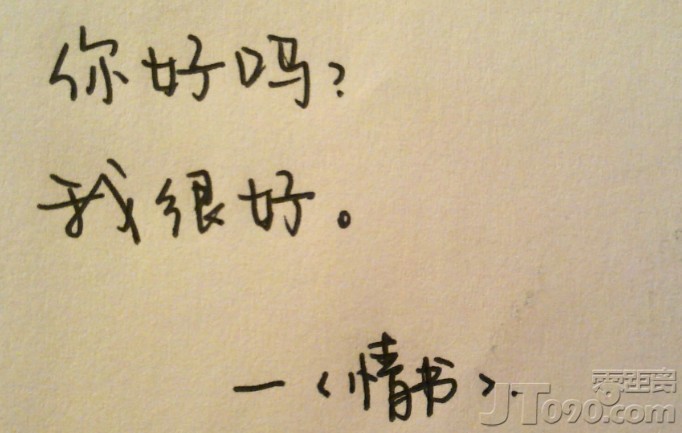 你好吗?
我很好。
—<情书>.
零距离
JT090.com